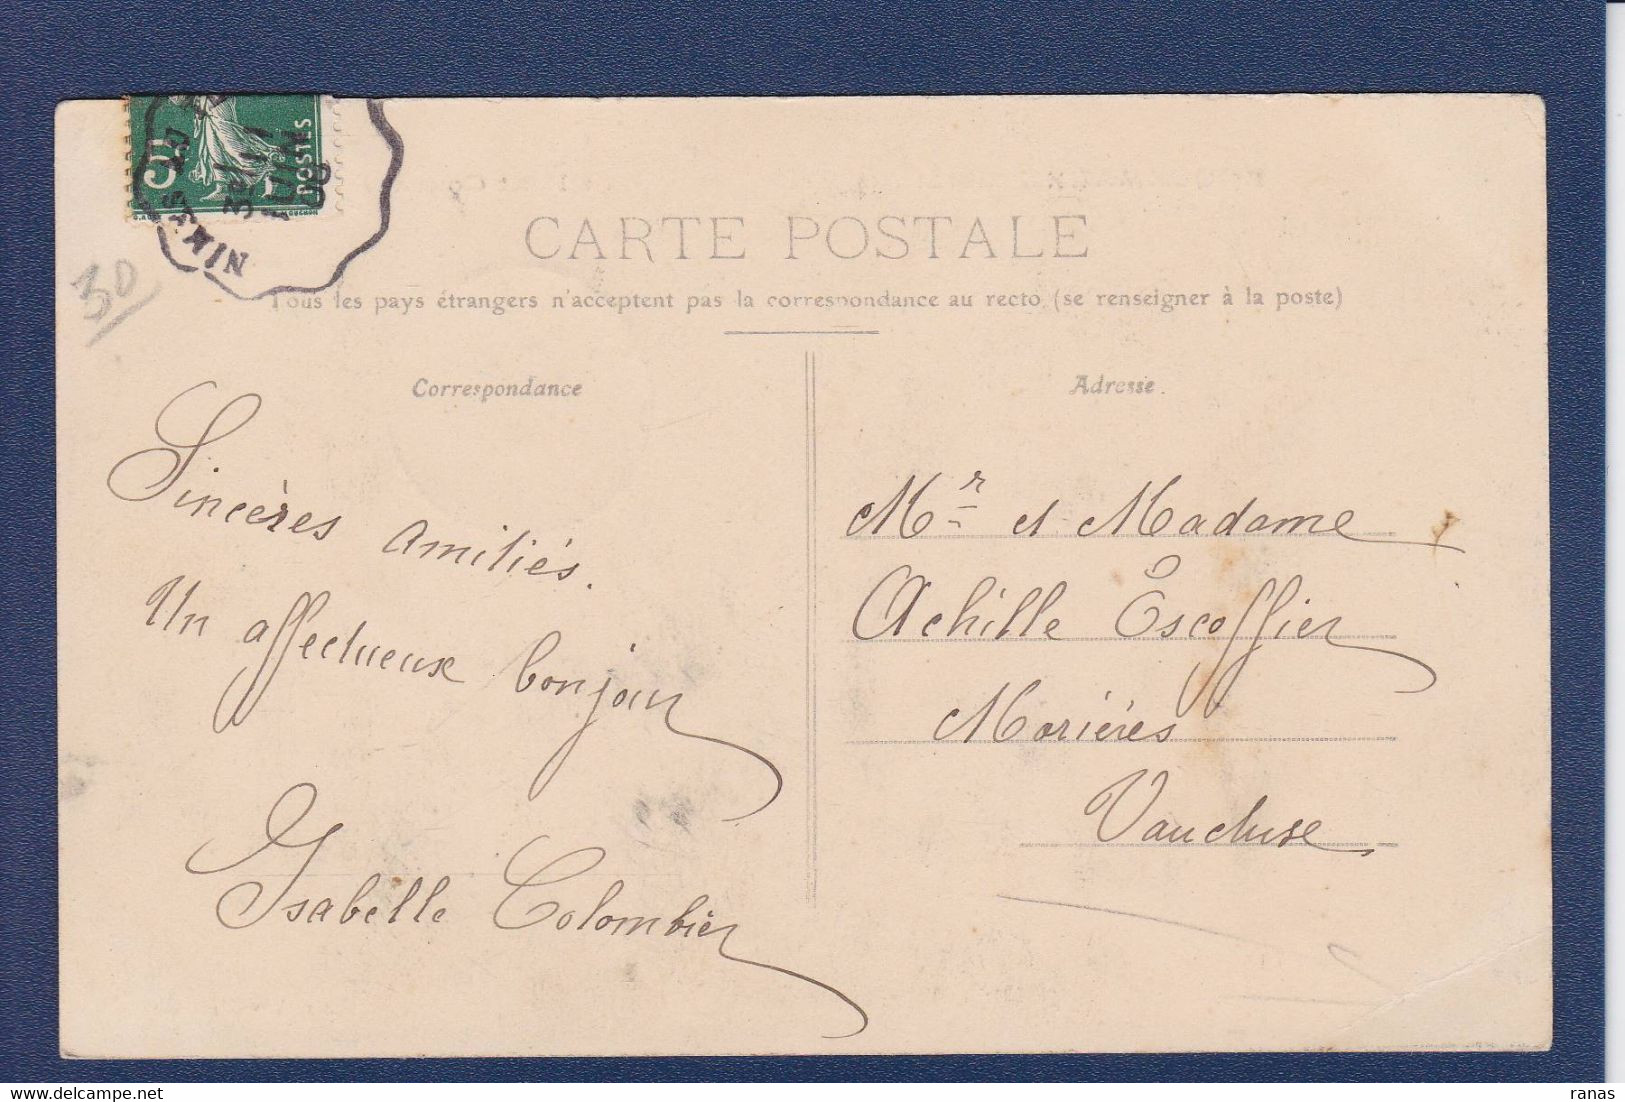 5c
POSTES
3E/11
JUIN
08
30
CARTE POSTALE
Tous les pays étrangers n'acceptent pas la correspondance au recto (se renseigner à la poste)
Correspondance
Sincères amitiés.
Un affectueux bonjour
Isabelle Colombier
Adresse.
Mr et Madame
Achille Escoffier
Morières
Vaucluse
ranas